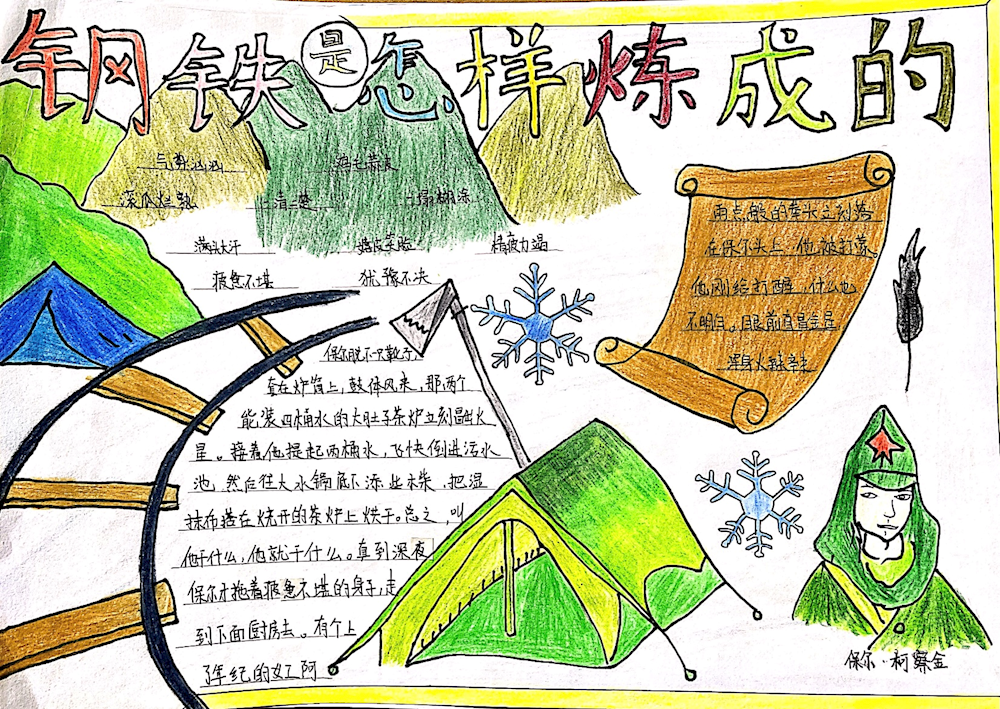 钢铁是怎样炼成的
气势汹汹
滚瓜烂熟 一清二楚 一塌糊涂
满头大汗 嬉皮笑脸 精疲力竭
疲惫不堪 犹豫不决
雨点般的拳头立刻落
在保尔头上,他被打蒙。
他刚给打醒,什么也
不明白。眼前直冒金星
浑身火辣辣
保尔脱下一只靴子
套在炉筒上,鼓体风来,那两个
能装四桶水的大肚子茶炉立刻冒出火
星。接着他提起两桶水,飞快倒进污水
池,然后往大水锅底下添些木柴,把湿
抹布搭在烧开的茶炉上烘干。总之,叫
他干什么,他就干什么。直到深夜
保尔才拖着疲惫不堪的身子,走
到下面厨房去。有个上
了年纪的女工阿
保尔·柯察金